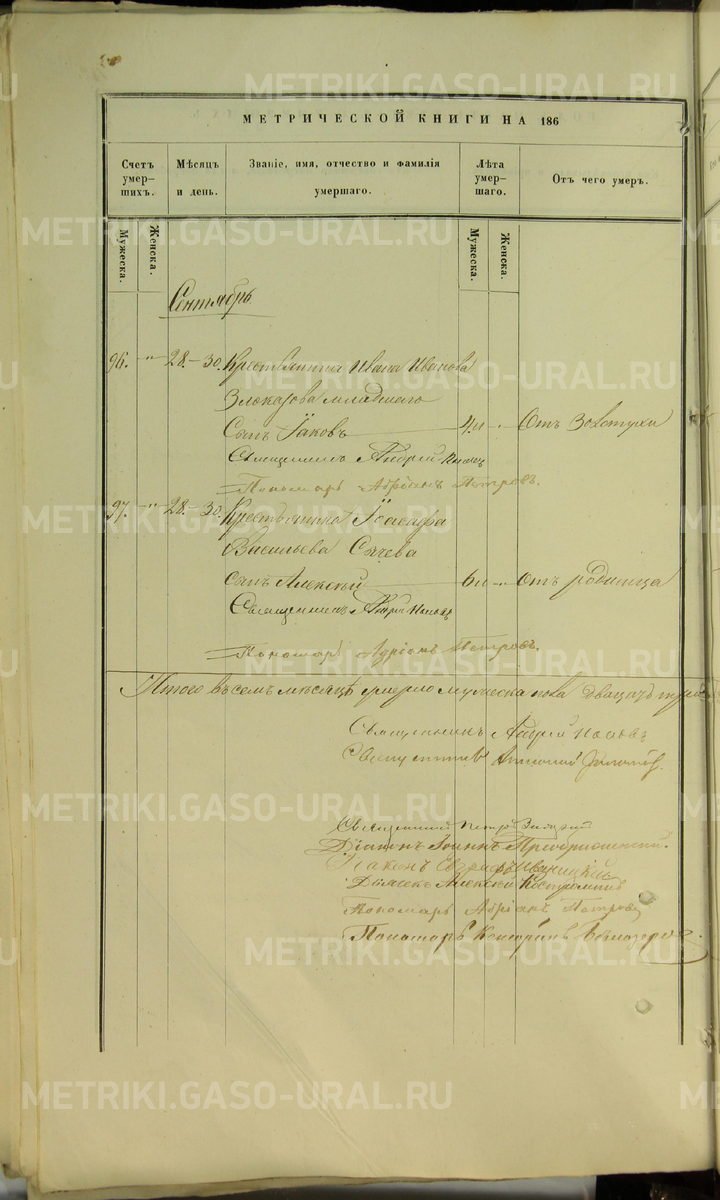 МЕТРИЧЕСКОЙ КНИГИ НА 186
Счетъ умер-шихъ.
Мѣсяцъ и день.
Званіе, имя, отчество и фамилія умершаго.
Лѣта умер-шаго.
Отъ чего умеръ.
Мужеска.
Женска.
Мужеска.
Женска.
Сентябрь
96. " 28.-30. Крестьянина Ивана Иванова
Злоказова младшаго
Сынъ Іаковъ 4 н. Отъ Золотухи
Священникъ Андрей
Пономарь Адріанъ Петровъ.
97. " 28.-30. Крестьянина Іоасафа
Васильева Сычева
сынъ Алексѣй 6 н. Отъ родимца
Священникъ Андрей
Пономарь Адріанъ Петровъ.
Итого въ семъ мѣсяцѣ умерло мужеска пола двацать три
Священникъ Андрей
Священникъ
Священникъ Петръ
Діаконъ Іоаннъ Преображенскій.
Діаконъ Евграфъ Иваницкій
Дьячекъ Алексѣй Костроминъ
Пономарь Адріанъ Петровъ
Пономарь Бѣлозеровъ
METRIKI.GASO-URAL.RU